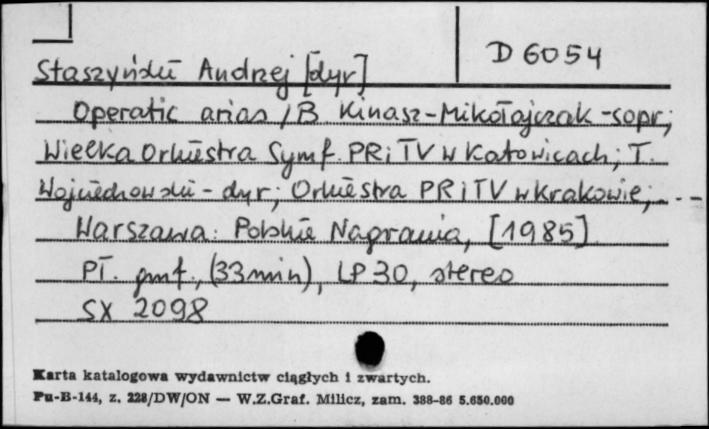 D 6054
Staszyński Andrzej [dyr]
Operatic arias / B. Kinasz-Mikołajczak - sopr.;
Wielka Orkiestra Symf. PR i TV w Katowicach; T.
Wojciechowski - dyr; Orkiestra PR i TV w Krakowie; ...-
Warszawa: Polskie Nagrania, [1985]
Pł. gmf., (33 min), LP 30, stereo
SX 2098
Karta katalogowa wydawnictw ciągłych i zwartych.
Pu-B-144, z. 228/DW/ON — W.Z.Graf. Milicz, zam. 388-86 5.650.000